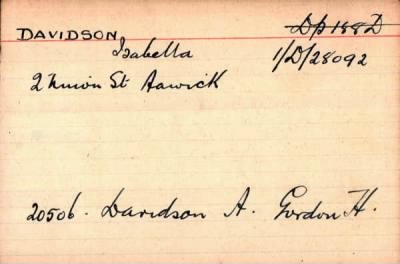 DAVIDSON Dp 188D
Isabella 1/D/28092
2 Union St Hawick
20506. Davidson A. Gordon H.